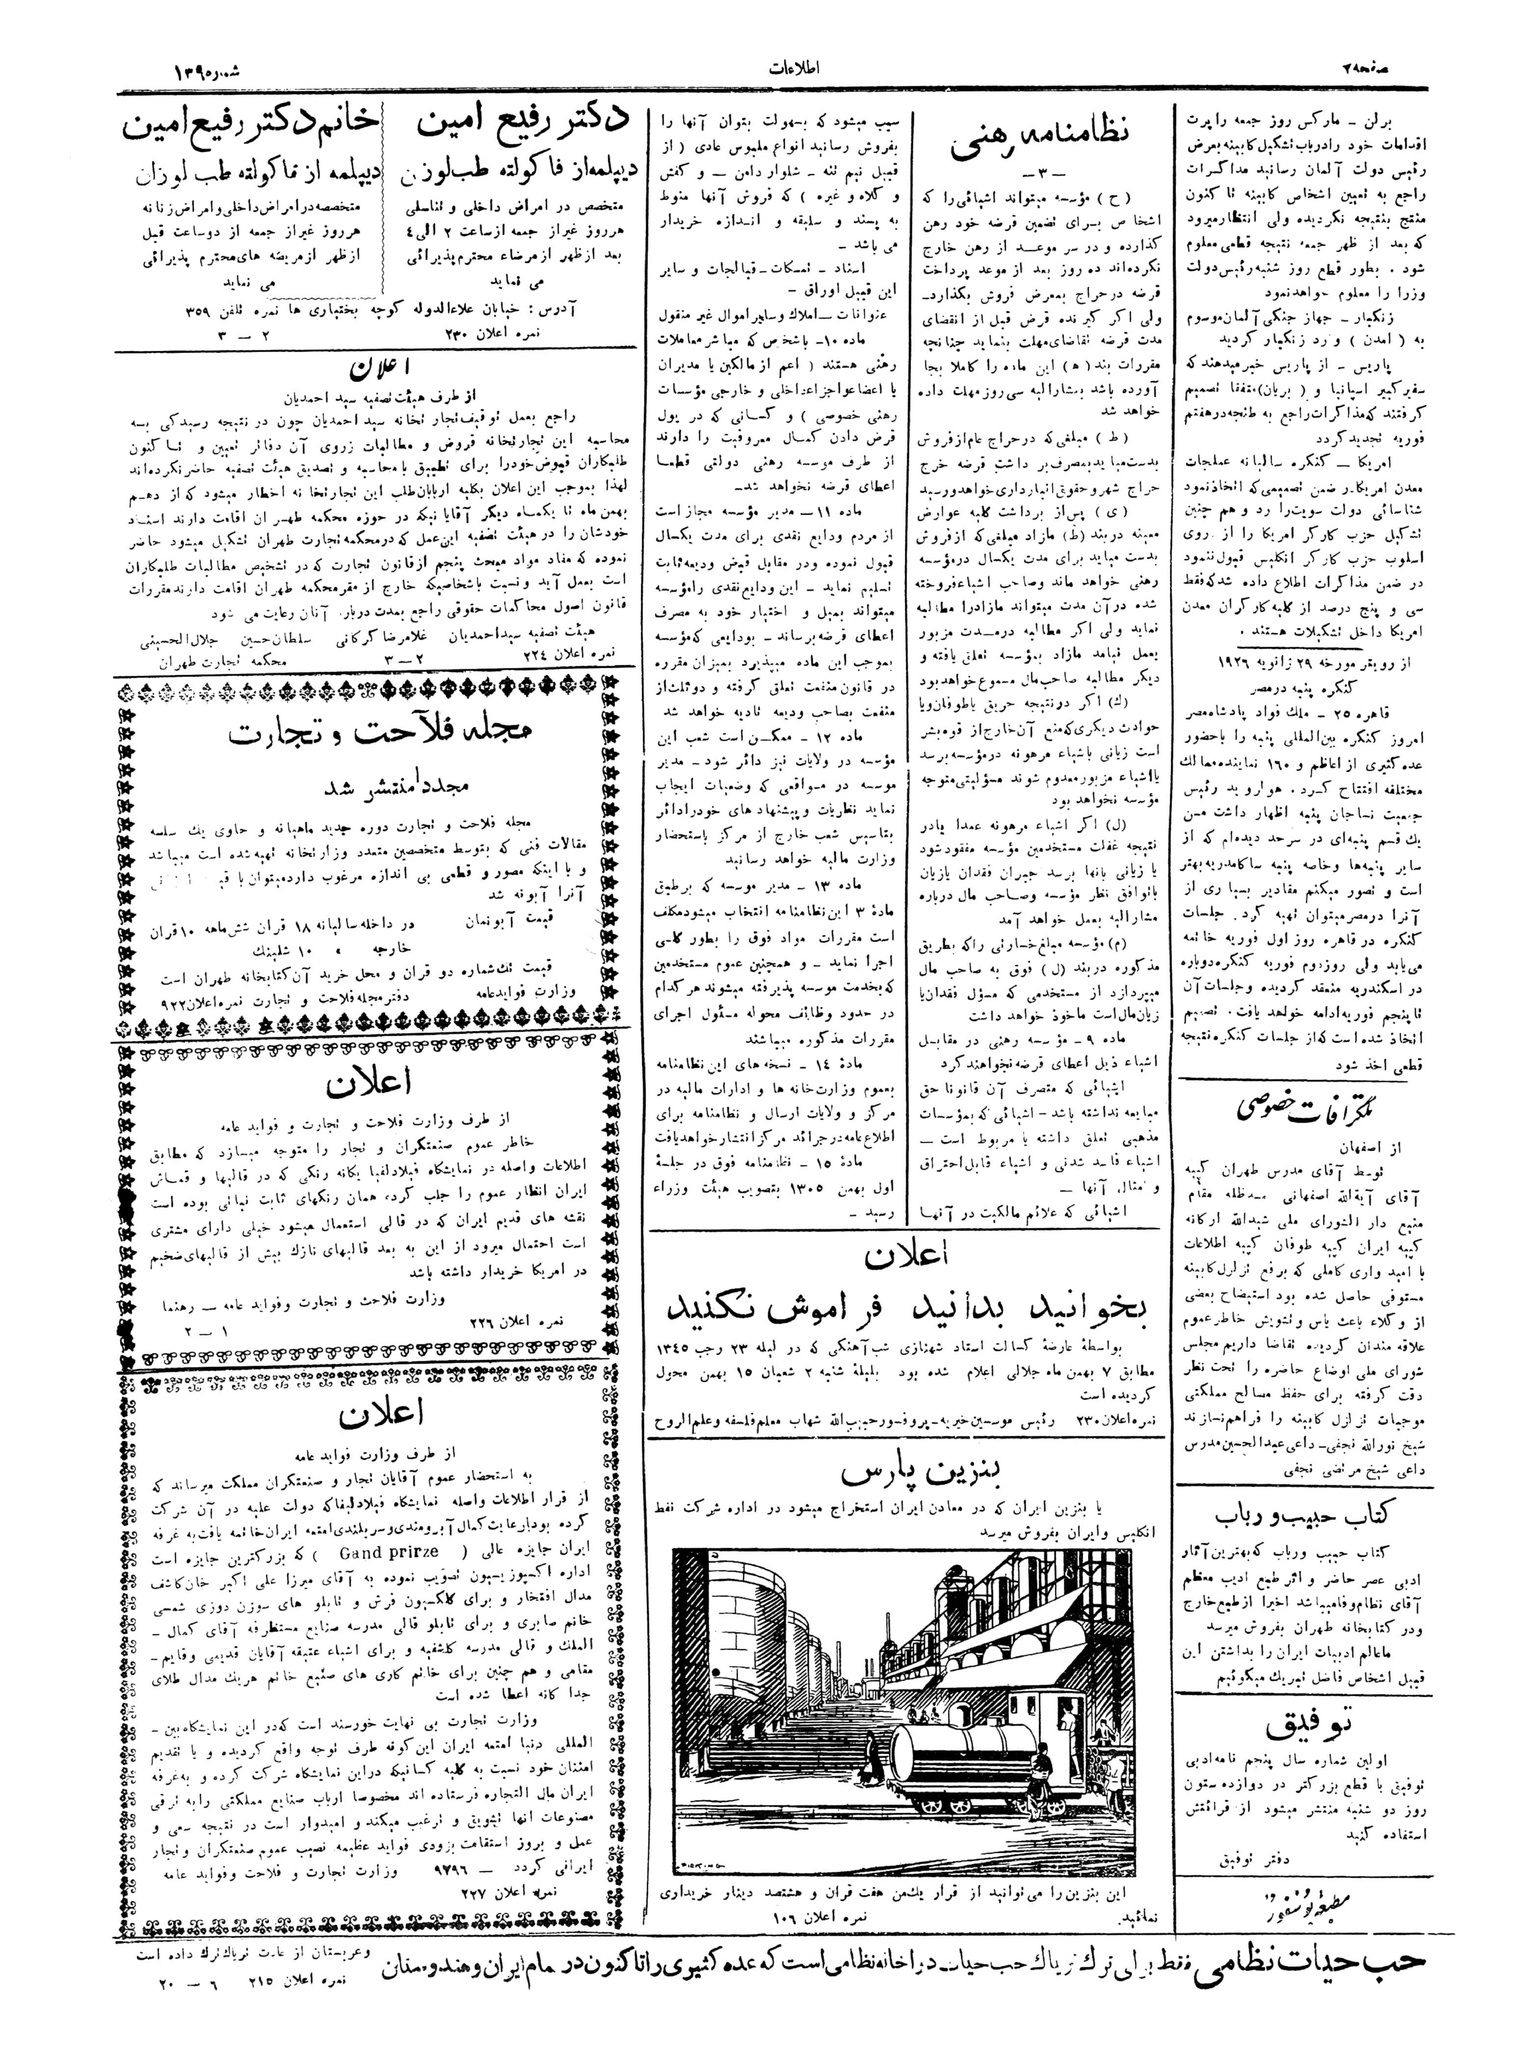 صفحه ۲۸
اطلاعات
شماره ۱۳۹۵
برلن – مارکس روز جمعه راپرت
اقدامات خود را در باب تشکیل کابینه بعرض
رئیس دولت آلمان رسانید مذاکرات
راجع به تعیین اشخاص کابینه تا کنون
منتج بنتیجه نگردیده ولی انتظار میرود
که بعد از ظهر جمعه نتیجه قطعی معلوم
شود . بطور قطع روز شنبه رئیس دولت
وزرا را معلوم خواهد نمود
زنگبار – جهاز جنگی آلمان موسوم
به ( امدن ) وارد زنگبار گردید
پاریس – از پاریس خبر میدهند که
سفیر کبیر اسپانیا و ( بریان) متفقا تصمیم
گرفتند که مذاکرات راجع به طنجه در هفتم
فوریه تجدید گردد
امریکا – کنگره سالیانه عملجات
معدن امریکا در ضمن تصمیمی که اتخاذ نمود
شناسائی دولت سویت را رد و هم چنین
تشکیل حزب کارگر امریکا را از روی
اسلوب حزب کارگر انگلیس قبول ننمود
در ضمن مذاکرات اطلاع داده شد که فقط
سی و پنج درصد از کلیه کارگران معدن
امریکا داخل تشکیلات هستند .
از رویتر مورخه ۲۹ ژانویه ۱۹۲۶
کنگره پنبه در مصر
قاهره ۲۵ – ملك فواد پادشاه مصر
امروز کنگره بین المللی پنبه را با حضور
عده کثیری از اعاظم و ۱۶۰ نماینده ممالك
مختلفه افتتاح کرد . هواروید رئیس
جمعیت نساجان پنبه اظهار داشت من
یك قسم پنبه‌ای در سرحد دیده‌ام که از
سایر پنبه‌ها و خاصه پنبه ساکامدریه بهتر
است و تصور میکنم مقادیر بسیاری از
آنرا در مصر میتوان تهیه کرد . جلسات
کنگره در قاهره روز اول فوریه خاتمه
می‌یابد ولی روز دوم فوریه کنگره دوباره
در اسکندریه منعقد گردیده و جلسات آن
تا پنجم فوریه ادامه خواهد یافت . تصمیم
اتخاذ شده است که از جلسات کنگره نتیجه
قطعی اخذ شود
تلگرافات خصوصی
از اصفهان
توسط آقای مدرس طهران کپیه
آقای آیةالله اصفهانی مدظله مقام
منیع دار الشورای ملی شیدالله ارکانه
کپیه ایران کپیه طوفان کپیه اطلاعات
با امیدواری کاملی که برفع تزلزل کابینه
مستوفی حاصل شده بود استیضاح بعضی
از وکلاء باعث یاس و تشویش خاطر عموم
علاقه مندان گردیده تقاضا داریم مجلس
شورای ملی اوضاع حاضره را تحت نظر
دقت گرفته برای حفظ مصالح مملکتی
موجبات تزلزل کابینه را فراهم نسازند
شیخ نورالله نجفی– داعی عبدالحسین مدرس
داعی شیخ مرتضی نجفی
کتاب حبیب و رباب
کتاب حبیب و رباب که بهترین آثار
ادبی عصر حاضر و اثر طبع ادیب معظم
آقای نظام وفا میباشد اخیرا از طبع خارج
و در کتابخانه طهران بفروش میرسد
ما عالم ادبیات ایران را بداشتن این
قبیل اشخاص فاضل تبریك میگوئیم
توفیق
اولین شماره سال پنجم نامه ادبی
توفیق با قطع بزرگتر در دوازده ستون
روز دو شنبه منتشر میشود از قرائتش
استفاده کنید
دفتر توفیق
نظامنامه رهنی
– ۳ –
( ح ) مؤسسه میتواند اشیائی را که
اشخاص برای تضمین قرضه خود رهن
گذارده و در سر موعد از رهن خارج
نکرده‌اند ده روز بعد از موعد پرداخت
قرضه در حراج بمعرض فروش بگذارد–
ولی اگر گیرنده قرض قبل از انقضای
مدت قرضه تقاضای مهلت بنماید چنانچه
مقررات بند ( ه ) این ماده را کاملا بجا
آورده باشد بمشارالیه سی روز مهلت داده
خواهد شد
( ط ) مبلغی که در حراج عام از فروش
بدست میاید بمصرف بر داشت قرضه خرج
حراج شهر و حقوق انبارداری خواهد رسید
( ی ) پس از برداشت کلیه عوارض
معینه در بند (ط) مازاد مبلغی که از فروش
بدست میاید برای مدت یکسال در مؤسسه
رهنی خواهد ماند و صاحب اشیاء فروخته
شده در آن مدت میتواند مازاد را مطالبه
نماید ولی اگر مطالبه در مدت مزبور
بعمل نیامد مازاد بمؤسسه تعلق یافته و
دیگر مطالبه صاحب مال مسموع خواهد بود
(ك) اگر در نتیجه حریق یا طوفان و یا
حوادث دیگری که منع آن خارج از قوه بشر
است زیانی باشیاء مرهونه در مؤسسه برسد
یا اشیاء مزبور معدوم شوند مسؤلیتی متوجه
مؤسسه نخواهد بود
(ل) اگر اشیاء مرهونه عمدا یا در
نتیجه غفلت مستخدمین مؤسسه مفقود شود
یا زیانی بانها برسد جبران فقدان یا زیان
با توافق نظر مؤسسه و صاحب مال در باره
مشارالیه بعمل خواهد آمد
(م) مؤسسه مبلغ خسارتی را که بطریق
مذکوره در بند (ل) فوق به صاحب مال
میپردازد از مستخدمی که مسؤل فقدان یا
زیان مال است ماخوذ خواهد داشت
ماده ۹ – مؤسسه رهنی در مقابل
اشیاء ذیل اعطای قرضه نخواهند کرد
اشیائی که متصرف آن قانونا حق
مبایعه نداشته باشد – اشیائی که بمؤسسات
مذهبی تعلق داشته یا مربوط است –
اشیاء فاسد شدنی و اشیاء قابل احتراق
و امثال آنها –
اشیائی که علائم مالکیت در آنها
سبب میشود که بسهولت بتوان آنها را
بفروش رسانید انواع ملبوس عادی ( از
قبیل نیم تنه – شلوار دامن – و کفش
و کلاه و غیره ) که فروش آنها منوط
به پسند و سلیقه و اندازه خریدار
می باشد –
اسناد – تمسکات – قبالجات و سایر
این قبیل اوراق –
عنوانات – املاك و سایر اموال غیر منقول
ماده ۱۰– باشخاصی که مباشر معاملات
رهنی هستند ( اعم از مالکین یا مدیران
یا اعضا و اجزاء داخلی و خارجی مؤسسات
رهنی خصوصی ) و کسانی که در پول
قرض دادن کمال معروفیت را دارند
از طرف موسسه رهنی دولتی قطعا
اعطای قرضه نخواهد شد–
ماده ۱۱ – مدیر مؤسسه مجاز است
از مردم ودایع نقدی برای مدت یکسال
قبول نموده و در مقابل قبض ودیعه ثابت
تسلیم نماید – این ودایع نقدی را مؤسسه
میتواند بمیل و اختیار خود به مصرف
اعطای قرضه برساند – بودایعی که مؤسسه
بموجب این ماده میپذیرد بمیزان مقرره
در قانون منفعت تعلق گرفته و دو ثلث از
منفعت بصاحب ودیعه تادیه خواهد شد
ماده ۱۲ – ممکن است شعب این
مؤسسه در ولایات نیز دائر شود – مدیر
موسسه در مواقعی که وضعیات ایجاب
نماید نظریات و پیشنهاد های خود را دائر
بتاسیس شعب خارج از مرکز باستحضار
وزارت مالیه خواهد رسانید
ماده ۱۳ – مدیر موسسه که بر طبق
مادهٔ ۳ این نظامنامه انتخاب میشود مکلف
است مقررات مواد فوق را بطور کلی
اجرا نماید – و همچنین عموم مستخدمین
که بخدمت موسسه پذیرفته میشوند هر کدام
در حدود وظائف محوله مسئول اجرای
مقررات مذکوره میباشند
مادهٔ ۱۴ – نسخه های این نظامنامه
بعموم وزارتخانه ها و ادارات مالیه در
مرکز و ولایات ارسال و نظامنامه برای
اطلاع عامه در جرائد مرکز انتشار خواهد یافت
مادهٔ ۱۵ – نظامنامه فوق در جلسهٔ
اول بهمن ۱۳۰۵ بتصویب هیئت وزراء
رسید –
اعلان
بخوانید بدانید فراموش نکنید
بواسطهٔ عارضهٔ کسالت استاد شهنازی شب‌آهنگی که در لیله ۲۳ رجب ۱۳۴۵
مطابق ۷ بهمن ماه جلالی اعلام شده بود بلیلهٔ شنبه ۲ شعبان ۱۵ بهمن محول
گردیده است
نمره اعلان ۲۳۰ رئیس موسسین خیریه – پروفسور حبیب الله شهاب معلم فلسفه و علم الروح
بنزین پارس
یا بنزین ایران که در معادن ایران استخراج میشود در اداره شرکت نفط
انگلیس و ایران بفروش میرسد
این بنزین را می‌توانید از قرار یك‌من هفت قران و هشتصد دینار خریداری
نمائید. نمره اعلان ۱۰۶
دکتر رفیع امین
دیپلمه از فاکولته طب لوزن
متخصص در امراض داخلی و تناسلی
هر روز غیر از جمعه از ساعت ۲ الی ۴
بعد از ظهر از مرضاء محترم پذیرائی
می نماید
خانم دکتر رفیع امین
دیپلمه از فاکولته طب لوزان
متخصصه در امراض داخلی و امراض زنانه
هر روز غیر از جمعه از دو ساعت قبل
از ظهر از مریضه های محترم پذیرائی
می نماید
آدرس : خیابان علاءالدوله کوچه بختیاری ها نمره تلفن ۳۵۹
نمره اعلان ۲۳۰ ۲ – ۳
اعلان
از طرف هیئت تصفیه سید احمدیان
راجع بعمل توقیف تجارتخانه سید احمدیان چون در نتیجه رسیدگی به
محاسبه این تجارتخانه قروض و مطالبات از روی آن دفاتر تعیین و تا کنون
طلبکاران قبوض خود را برای تطبیق با محاسبه و تصدیق هیئت تصفیه حاضر نکرده‌اند
لهذا بموجب این اعلان بکلیه اربابان طلب این تجارتخانه اخطار میشود که از دهم
بهمن ماه تا یکماه دیگر آقایانیکه در حوزه محکمه طهران اقامت دارند اسناد
خودشان را در هیئت تصفیه این عمل که در محکمه تجارت طهران تشکیل میشود حاضر
نموده که مفاد مواد مبحث پنجم از قانون تجارت که در تشخیص مطالبات طلبکاران
است بعمل آید و نسبت باشخاصیکه خارج از مقر محکمه طهران اقامت دارند مقررات
قانون اصول محاکمات حقوقی راجع بمدت در باره آنان رعایت می شود
هیئت تصفیه سید احمدیان غلامرضا گرکانی سلطان حسین جلال الحسینی
نمره اعلان ۲۲۴ ۲ – ۳ محکمه تجارت طهران
مجله فلاحت و تجارت
مجدداً منتشر شد
مجله فلاحت و تجارت دوره جدید ماهیانه و حاوی یك سلسه
مقالات فنی که بتوسط متخصصین متعدد وزارتخانه تهیه شده است میباشد
و با اینکه مصور و قطعی بی اندازه مرغوب دارد میتوان با
آنرا آبونه شد
قیمت آبونمان در داخله سالیانه ۱۸ قران شش ماهه ۱۰ قران
خارجه » ۱۰ شلینك
قیمت تك شماره دو قران و محل خرید آن کتابخانه طهران است
وزارت فواید عامه دفتر مجله فلاحت و تجارت نمره اعلان ۹۲۲
اعلان
از طرف وزارت فلاحت و تجارت و فواید عامه
خاطر عموم صنعتگران و تجار را متوجه میسازد که مطابق
اطلاعات واصله در نمایشگاه فیلادلفیا یگانه رنگی که در قالیها و قماش
ایران انظار عموم را جلب کرده همان رنگهای ثابت نباتی بوده است
نقشه های قدیم ایران که در قالی استعمال میشود خیلی دارای مشتری
است احتمال میرود از این به بعد قالیهای نازك بیش از قالیهای ضخیم
در امریکا خریدار داشته باشد
وزارت فلاحت و تجارت و فواید عامه – رهنما
نمره اعلان ۲۲۶ ۱ – ۲
اعلان
از طرف وزارت فواید عامه
به استحضار عموم آقایان تجار و صنعتگران مملکت میرساند که
از قرار اطلاعات واصله نمایشگاه فیلادلفیا که دولت علیه در آن شرکت
کرده بود با رعایت کمال آبرومندی و سربلندی امتعه ایران خاتمه یافت به غرفه
ایران جایزه عالی ( Gand prirze ) که بزرگترین جایزه است
اداره اکسپوزیسیون تصویب نموده به آقای میرزا علی اکبر خان کاشف
مدال افتخار و برای کلکسیون فرش و تابلو های سوزن دوزی شمسی
خانم صابری و برای تابلو قالی مدرسه صنایع مستظرفه آقای کمال –
الملك و قالی مدرسه کاشفیه و برای اشیاء عتیقه آقایان قدیمی و قایم –
مقامی و هم چنین برای خاتم کاری های صنیع خاتم هر یك مدال طلای
جدا گانه اعطا شده است
وزارت تجارت بی نهایت خورسند است که در این نمایشگاه بین –
المللی دنیا امتعه ایران این گونه طرف توجه واقع گردیده و با تقدیم
امتنان خود نسبت به کلیه کسانیکه در این نمایشگاه شرکت کرده و به غرفه
ایران مال التجاره فرستاده اند مخصوصا ارباب صنایع مملکتی را به ترقی
مصنوعات آنها تشویق و ترغیب میکند و امیدوار است در نتیجه سعی و
عمل و بروز استقامت بزودی فواید عظیمه نصیب عموم صنعتگران و تجار
ایرانی گردد – ۹۷۹۶ وزارت تجارت و فلاحت و فواید عامه
نمره اعلان ۲۲۷
حب حیات نظامی فقط برای ترك تریاك حب حیات دراخانه نظامی است که عده کثیری را تا کنون در تمام ایران و هندوستان
و عربستان از عادت تریاك ترك داده است
نمره اعلان ۲۱۵ ۶ – ۲۰